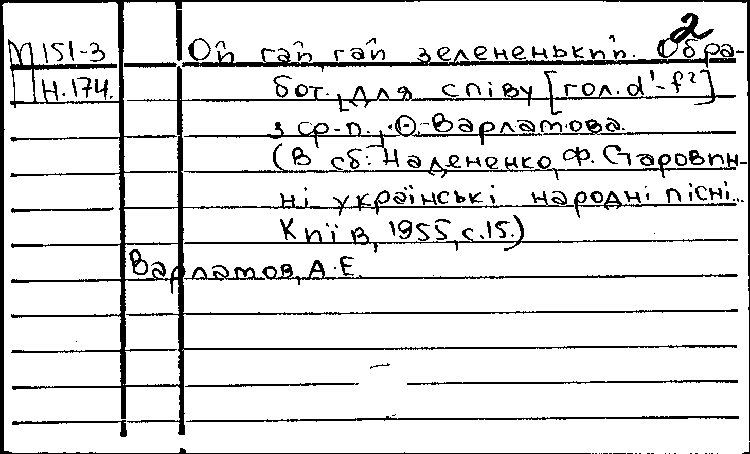 2
М 151-3 Ой гай, гай зелененький. Обра-
Н.174. бот. для співу [гол. d¹-f²]
з ф-п. О. Варламова.
(В сб: Надененко, Ф. Старовин-
ні українські народні пісні.
Київ, 1955, с.15.)
Варламов, А.Е.